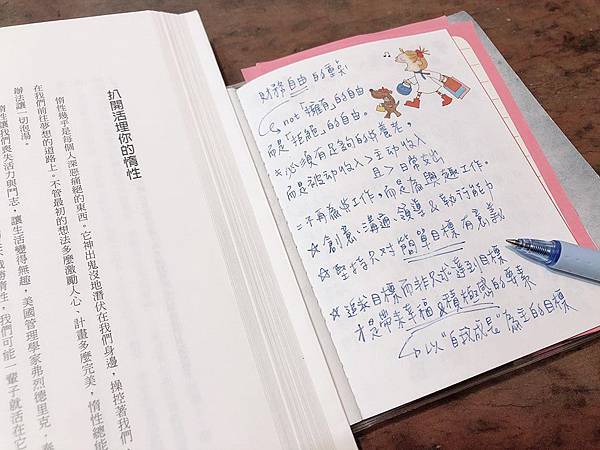 扒開活埋你的惰性
惰性幾乎是每個人深惡痛絕的東西。它神出鬼沒地潛伏在我們身邊，操控著我們，
在我們前往夢想的道路上。不管最初的想法多麼激勵人心、計畫多麼完美，惰性總能
辦法讓一切泡湯。
惰性讓我們喪失活力與鬥志，讓生活變得無趣，美國管理學家弗烈德里克．
惰性，我們可能一輩子就活在它
財務自由的要點
not「擁有」的自由
而是「拒絕」的自由。
*必須有足夠的
而是被動收入>主動收入
且>日常支出
=不再為生工作，而是為興趣工作。
☆創意、溝通、領導&執行能力
☆堅持只對簡單目標有意義
☆追求目標而非只求達到目標
才是帶來幸福&積極感的要素
以"自我成長"為主的目標